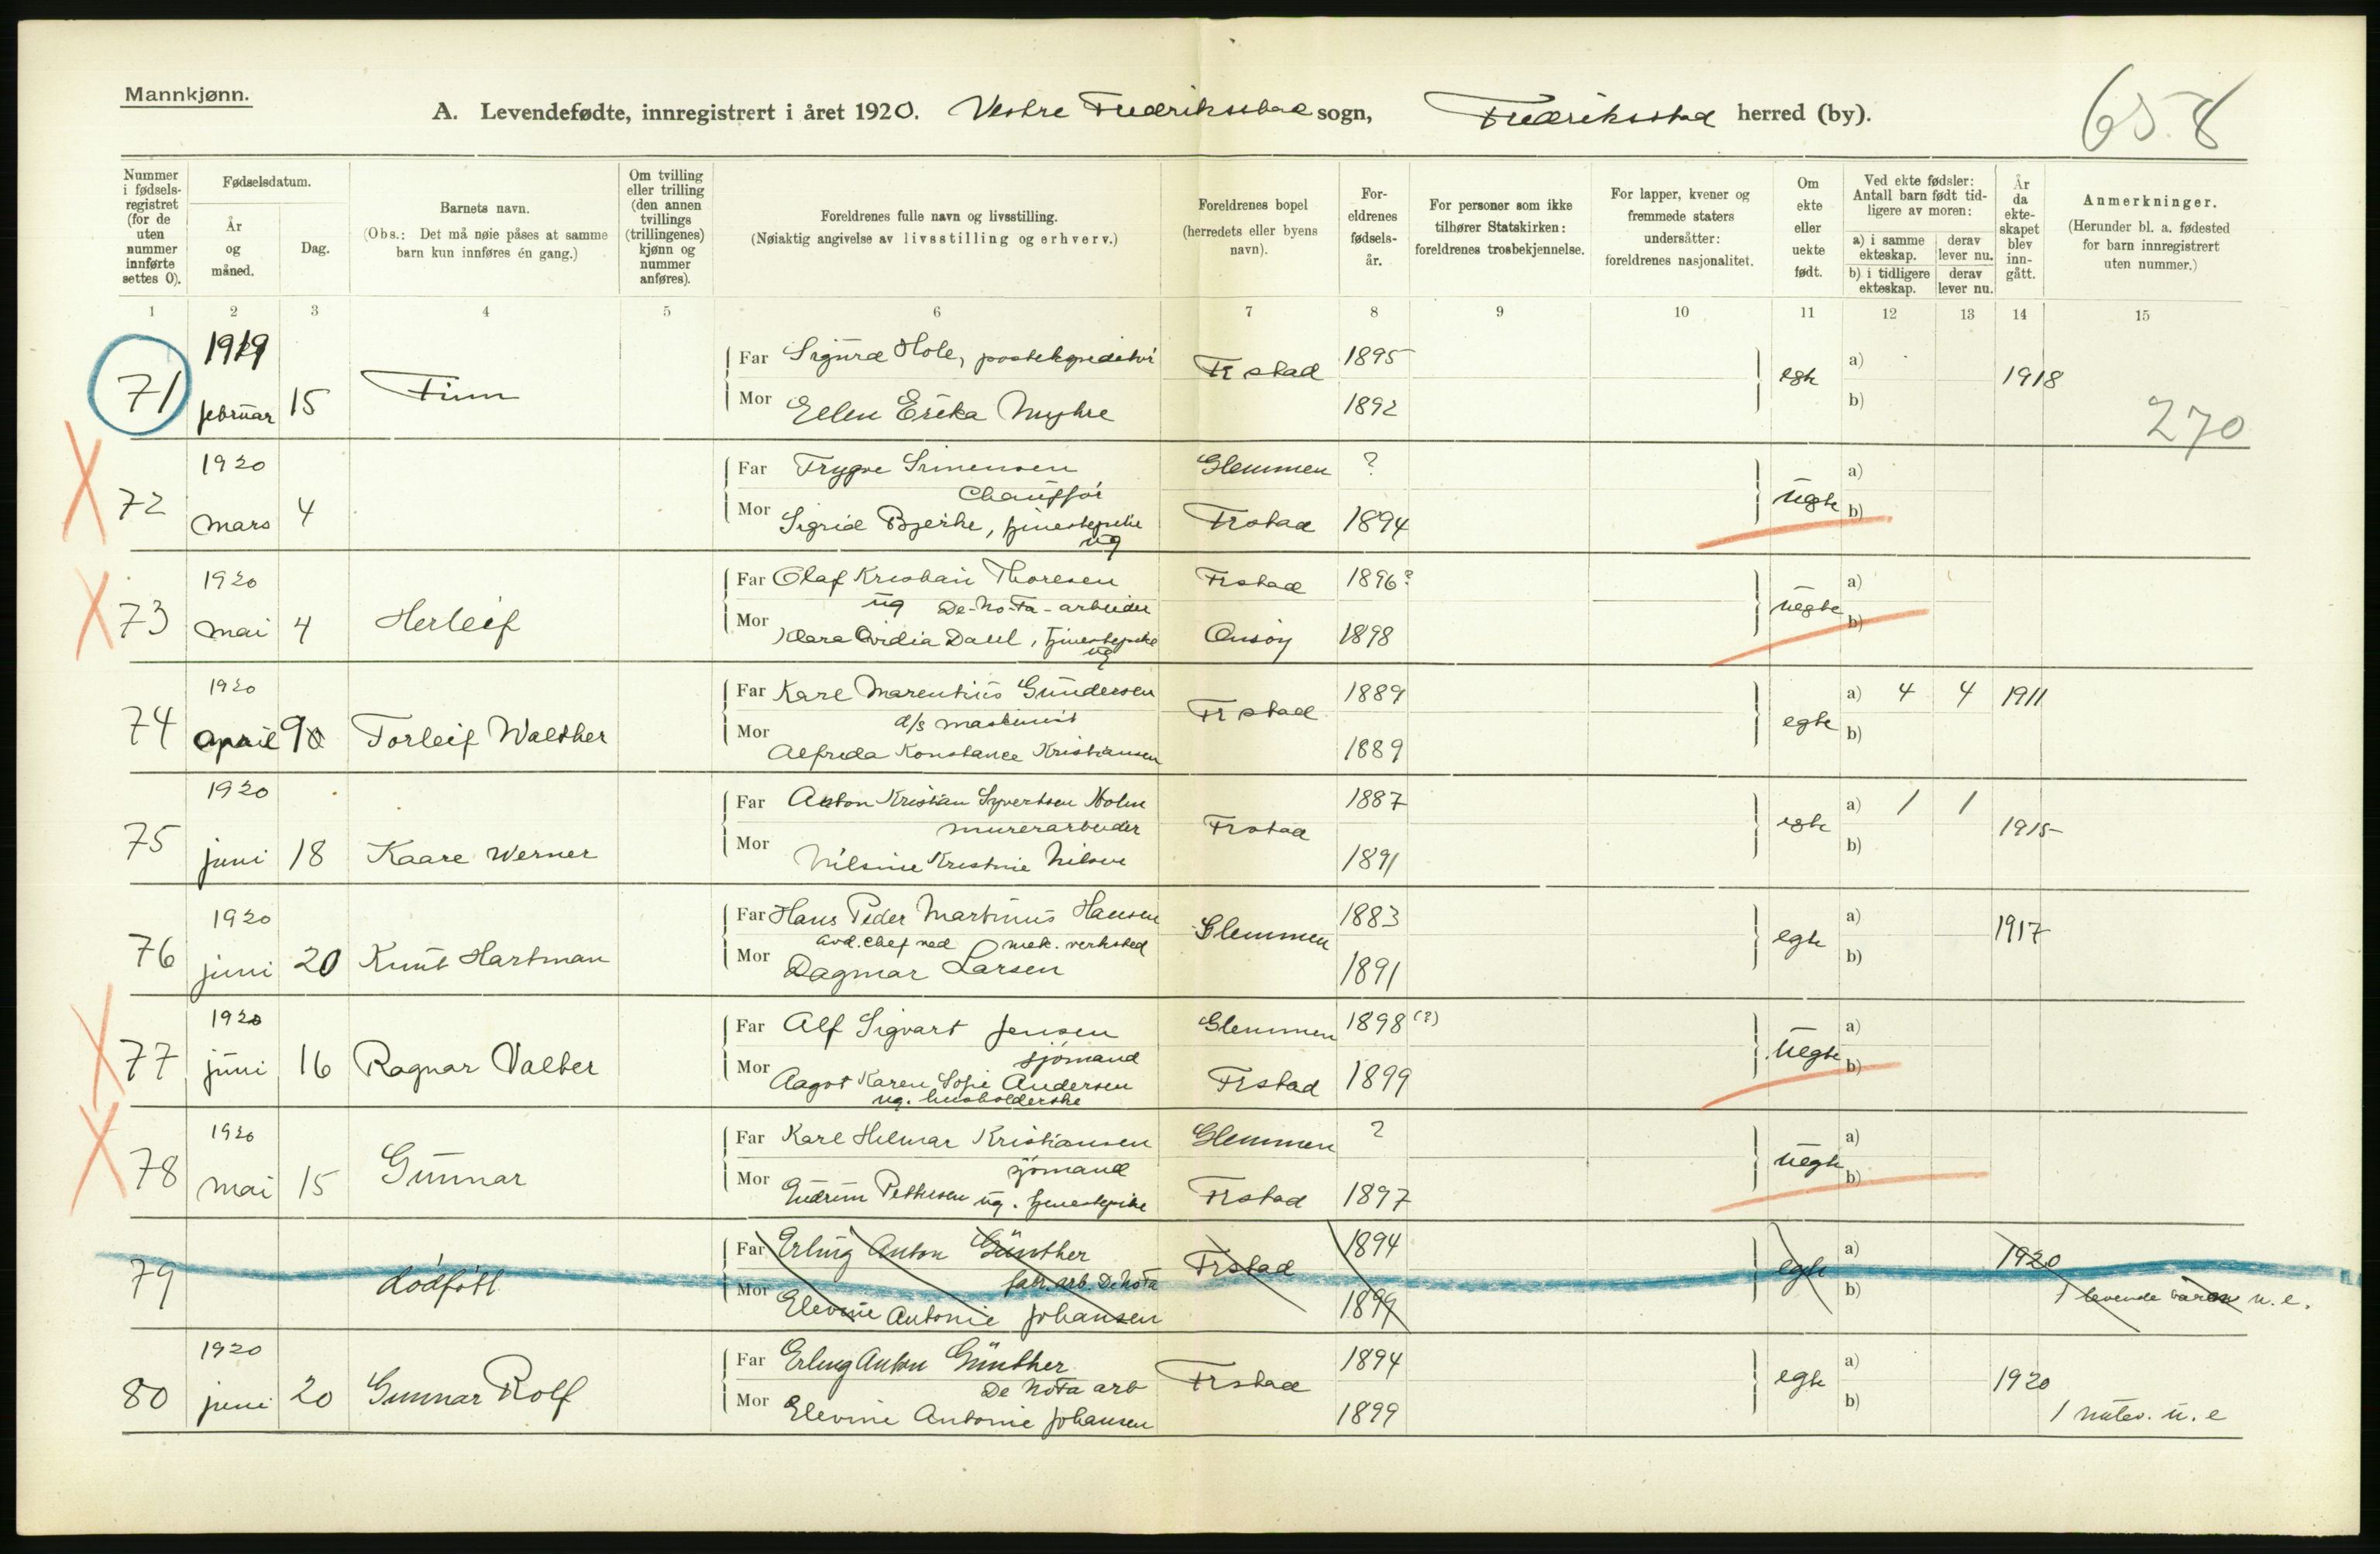 Mannkjønn.
A. Levendefødte, innregistrert i året 1920. Vestre Fredriksstad sogn, Fredriksstad herred (by).
65.8
Nummer i fødselsregistret (for de uten nummer innførte settes 0).
Fødselsdatum.
År og måned.
Dag.
Barnets navn.
(Obs.: Det må nøie påses at samme barn kun innføres én gang.)
Om tvilling eller trilling (den annen tvillings (trillingenes) kjønn og nummer anføres).
Foreldrenes fulle navn og livsstilling.
(Nøiaktig angivelse av livsstilling og erhverv.)
Foreldrenes bopel (herredets eller byens navn).
Foreldrenes fødselsår.
For personer som ikke tilhører Statskirken: foreldrenes trosbekjennelse.
For lapper, kvener og fremmede staters undersåtter: foreldrenes nasjonalitet.
Om ekte eller uekte født.
Ved ekte fødsler: Antall barn født tidligere av moren:
a) i samme ekteskap. derav lever nu.
b) i tidligere ekteskap. derav lever nu.
År da ekteskapet blev inngått.
Anmerkninger.
(Herunder bl. a. fødested for barn innregistrert uten nummer.)
1 2 3 4 5 6 7 8 9 10 11 12 13 14 15
1919
71 februar 15 Finn
Far Sigurd Hole, postekspeditør Fr stad 1895 egte a) 1918
Mor Ellen Erika Myhre 1892 b)
270
1920
72 mars 4
Far Trygve Simensen Glemmen ? a)
Chauffør
Mor Sigrid Bjerke, tjenestepike Frstad 1894 uegte b)
ug
1920
73 mai 4 Herleif
Far Olaf Kristian Thoresen Frstad 1896? a)
ug De-No-Fa-arbeider
Mor Klara Ovidia Dahl, tjenestepike Onsøy 1898 uegte b)
ug
1920
74 april 9 Torleif Walther
Far Karl Marentius Gundersen Fr stad 1889 egte a) 4 4 1911
d/s maskinist
Mor Alfreda Konstance Kristiansen 1889 b)
1920
75 juni 18 Kaare Werner
Far Anton Kristian Syvertsen Holm Frstad 1887 egte a) 1 1 1915
murerarbeider
Mor Nilsine Kristine Nilsen 1891 b)
1920
76 juni 20 Knut Hartman
Far Hans Peder Martinius Hansen Glemmen 1883 egte a) 1917
avd. chef ved mek. verksted
Mor Dagmar Larsen 1891 b)
1920
77 juni 16 Ragnar Valter
Far Alf Sigvart Jensen Glemmen 1898 (?) a)
sjømand
Mor Aagot Karen Sofie Andersen Frstad 1899 uegte b)
ug. husholderske
1920
78 mai 15 Gunnar
Far Karl Hilmar Kristiansen Glemmen ? a)
sjømand
Mor Gudrun Pettersen ug. tjenestepike Frstad 1897 uegte b)
79 dødfødt
Far Erling Anton Günther Frstad 1894 egte a) 1920
fabr. arb. De No Fa
Mor Elevine Antonie Johansen 1899 b) 1 levende u. e.
1920
80 juni 20 Gunnar Rolf
Far Erling Anton Günther Frstad 1894 egte a) 1920
De NoFa arb
Mor Elevine Antonie Johansen 1899 b) 1 u. e